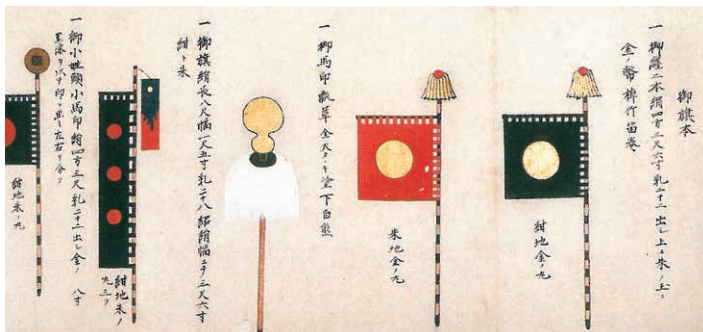 御旗本
一 御纏二本絹四方二尺六寸乳二十二出し上ニ朱ノ玉ニ
金ノ幣棹竹笛巻
紺地金ノ丸
朱地金ノ丸
一 御馬印瓢箪金大タミ塗下白熊
一 御旗絹長八尺幅一尺五寸乳二十八招絹幅二寸三尺六寸
紺ニ朱
紺地朱ノ
丸三ツ
一 御小姓頭小馬印絹四方三尺乳二十二出し金ノ 八寸
左右ヲ分ツ
紺地朱ノ丸